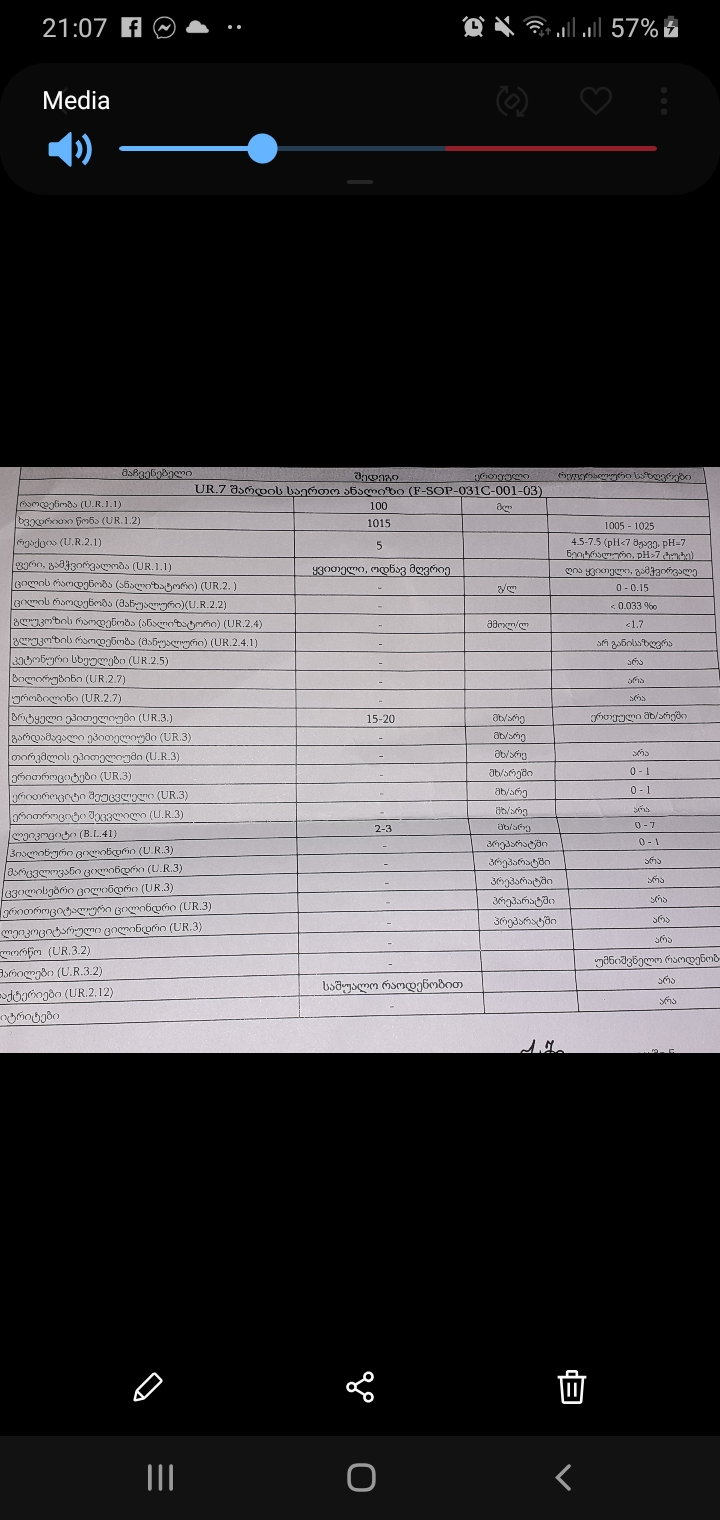 21:07 57%
Media
მაჩვენებელი შედეგი ერთეული რეფერალური საზღვრები
UR.7 შარდის საერთო ანალიზი (F-SOP-031C-001-03)
რაოდენობა (U.R.1.1) 100 მლ
ხვედრითი წონა (UR.1.2) 1015 1005 - 1025
რეაქცია (U.R.2.1) 5 4.5-7.5 (pH<7 მჟავე, pH=7
ნეიტრალური, pH>7 ტუტე)
ფერი, გამჭვირვალობა (UR.1.1) ყვითელი, ოდნავ მღვრიე ღია ყვითელი, გამჭვირვალე
ცილის რაოდენობა (ანალიზატორი) (UR.2. ) - გ/ლ 0 - 0.15
ცილის რაოდენობა (მანუალური)(U.R.2.2) - < 0.033 ‰
გლუკოზის რაოდენობა (ანალიზატორი) (UR.2.4) - მმოლ/ლ <1.7
გლუკოზის რაოდენობა (მანუალური) (UR.2.4.1) - არ განისაზღვრა
კეტონური სხეულები (UR.2.5) - არა
ბილირუბინი (UR.2.7) - არა
ურობილინი (UR.2.7) - არა
ბრტყელი ეპითელიუმი (UR.3.) 15-20 მხ/არე ერთეული მხ/არეში
გარდამავალი ეპითელიუმი (UR.3) - მხ/არე
თირკმლის ეპითელიუმი (UR.3) - მხ/არე არა
ერითროციტები (UR.3) - მხ/არეში 0 - 1
ერითროციტი შეუცვლელი (UR.3) - მხ/არე 0 - 1
ერითროციტი შეცვლილი (U.R.3) - მხ/არე არა
ლეიკოციტი (B.L.41) 2-3 მხ/არე 0 - 7
ჰიალინური ცილინდრი (U.R.3) - პრეპარატში 0 - 1
მარცვლოვანი ცილინდრი (U.R.3) - პრეპარატში არა
ცვილისებრი ცილინდრი (UR.3) - პრეპარატში არა
ერითროციტალური ცილინდრი (UR.3) - პრეპარატში არა
ლეიკოციტარული ცილინდრი (UR.3) - პრეპარატში არა
ლორწო (UR.3.2) - არა
მარილები (U.R.3.2) - უმნიშვნელო რაოდენობ
აქტერიები (UR.2.12) საშუალო რაოდენობით არა
იტრიტები - არა